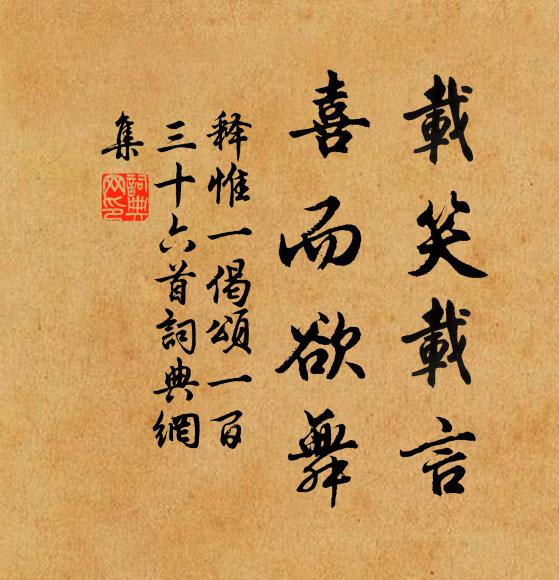 載笑載言
喜而欲舞
释惟一偈頌一百
三十六首詞典網
集
詞典
网印